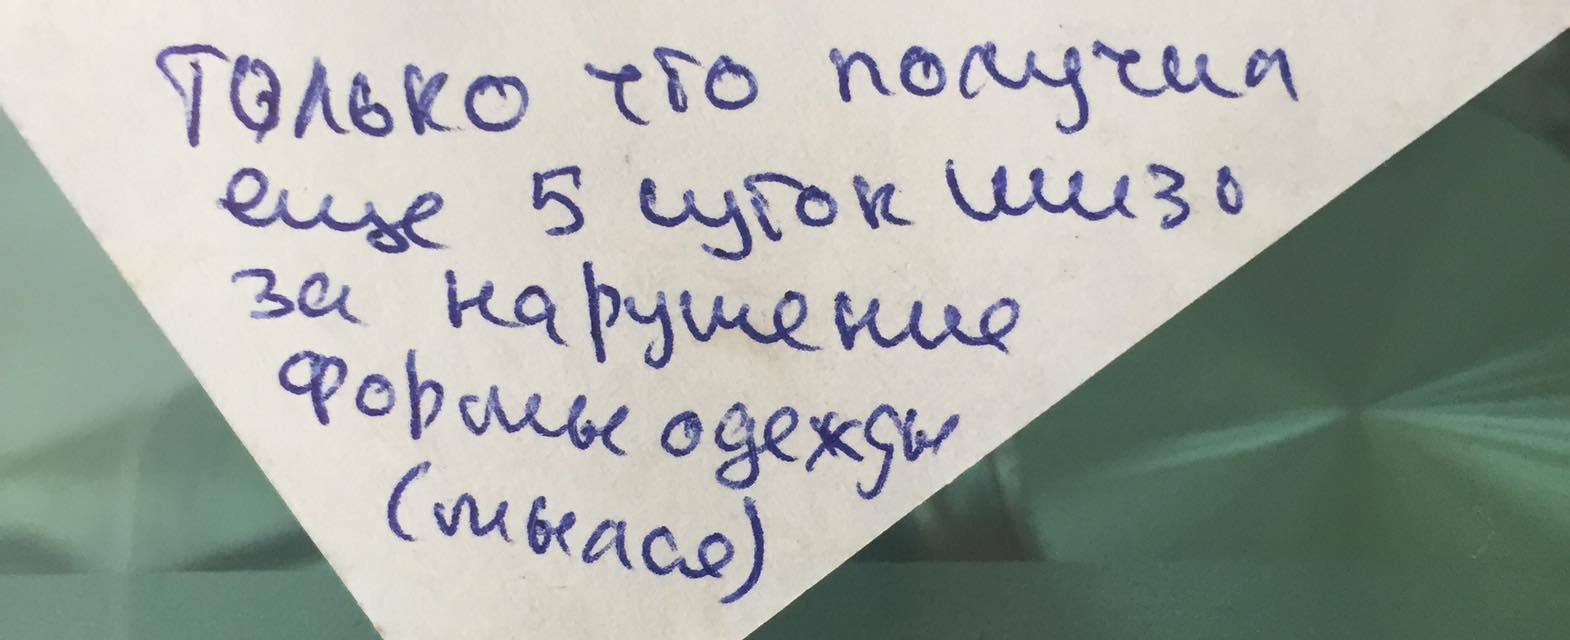 только что получил
еще 5 суток шизо
за нарушение
формы одежды
(мылся)